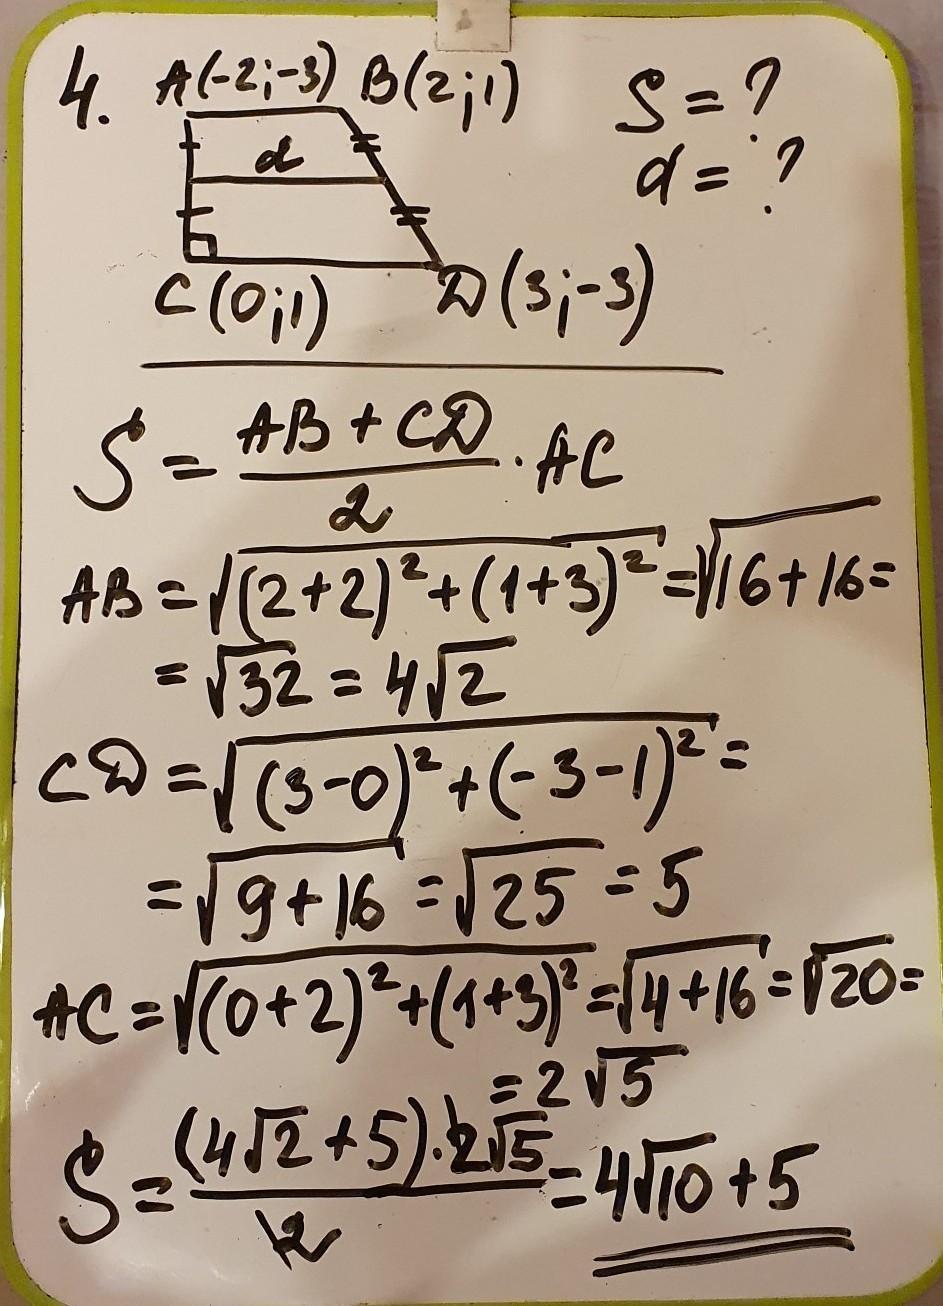 4. A(-2;-3) B(2;1) S = ?
d d = ?
C(0;1) D(3;-3)
S = (AB + CD)/2 · AC
AB = √((2+2)² + (1+3)²) = √(16+16) =
= √32 = 4√2
CD = √((3-0)² + (-3-1)²) =
= √(9+16) = √25 = 5
AC = √((0+2)² + (1+3)²) = √(4+16) = √20 =
= 2√5
S = ((4√2 + 5) · 2√5)/2 = 4√10 + 5